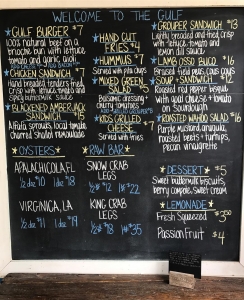 WELCOME TO THE GULF
GULF BURGER $7
100% natural beef on a
brioche bun with lettuce
tomato and garlic aioli
CHICKEN SANDWICH $7
Hand breaded tenders,
fried crisp with lettuce tomato and
spicy buttermilk sauce
BLACKENED AMBERJACK
SANDWICH $15
Alfalfa sprouts, local tomato
charred shallot remoulade
HAND CUT
FRIES $4
HUMMUS $7
Served with pita chips
MIXED GREEN
SALAD $5
Balsamic dressing
KIDS GRILLED
CHEESE $7
Served with fries
GROUPER SANDWICH $13
Lightly breaded and fried crisp
with lettuce tomato and
LAMB OSSO BUCO $16
SANDWICH $12
Roasted red pepper basque
with goat cheese + tomato
on Sourdough
ROASTED WAHOO SALAD $16
Purple mustard, arugula,
roasted beets + turnips,
pecan vinaigrette
OYSTERS
APALACHICOLA, FL
1/2 doz $10 1 doz $18
VIRGINICA, LA
1/2 doz $11 1 doz $19
RAW BAR
SNOW CRAB
LEGS
1/2 lb $12 1 lb $22
KING CRAB
LEGS
1/2 lb $18 1 lb $35
DESSERT $5
Sweet buttermilk biscuits,
berry compote, sweet cream
LEMONADE
Fresh Squeezed
Passion Fruit $4